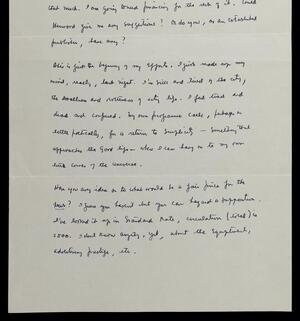 that much. I am going toward financing for the rest of it. Could
Harwood give me any suggestions? Or do you, as an established
publisher, have any?
This is just the beginning of my efforts. I just made up my
mind, really, last night. I'm sick and tired of the city,
the deadliness and rottenness of city life. I feel tired and
dead and confused. My own programme calls, perhaps a
little poetically, for a return to simplicity — something that
approaches the Good Life — where I can hang on to my own
little corner of the universe.
Have you any idea as to what would be a fair price for the
paper? I guess you haven't but you can hazard a supposition.
I've looked it up in Standard Rate, circulation (listed) is
2500. I don't know anything, yet, about the equipment,
advertising prestige, etc.